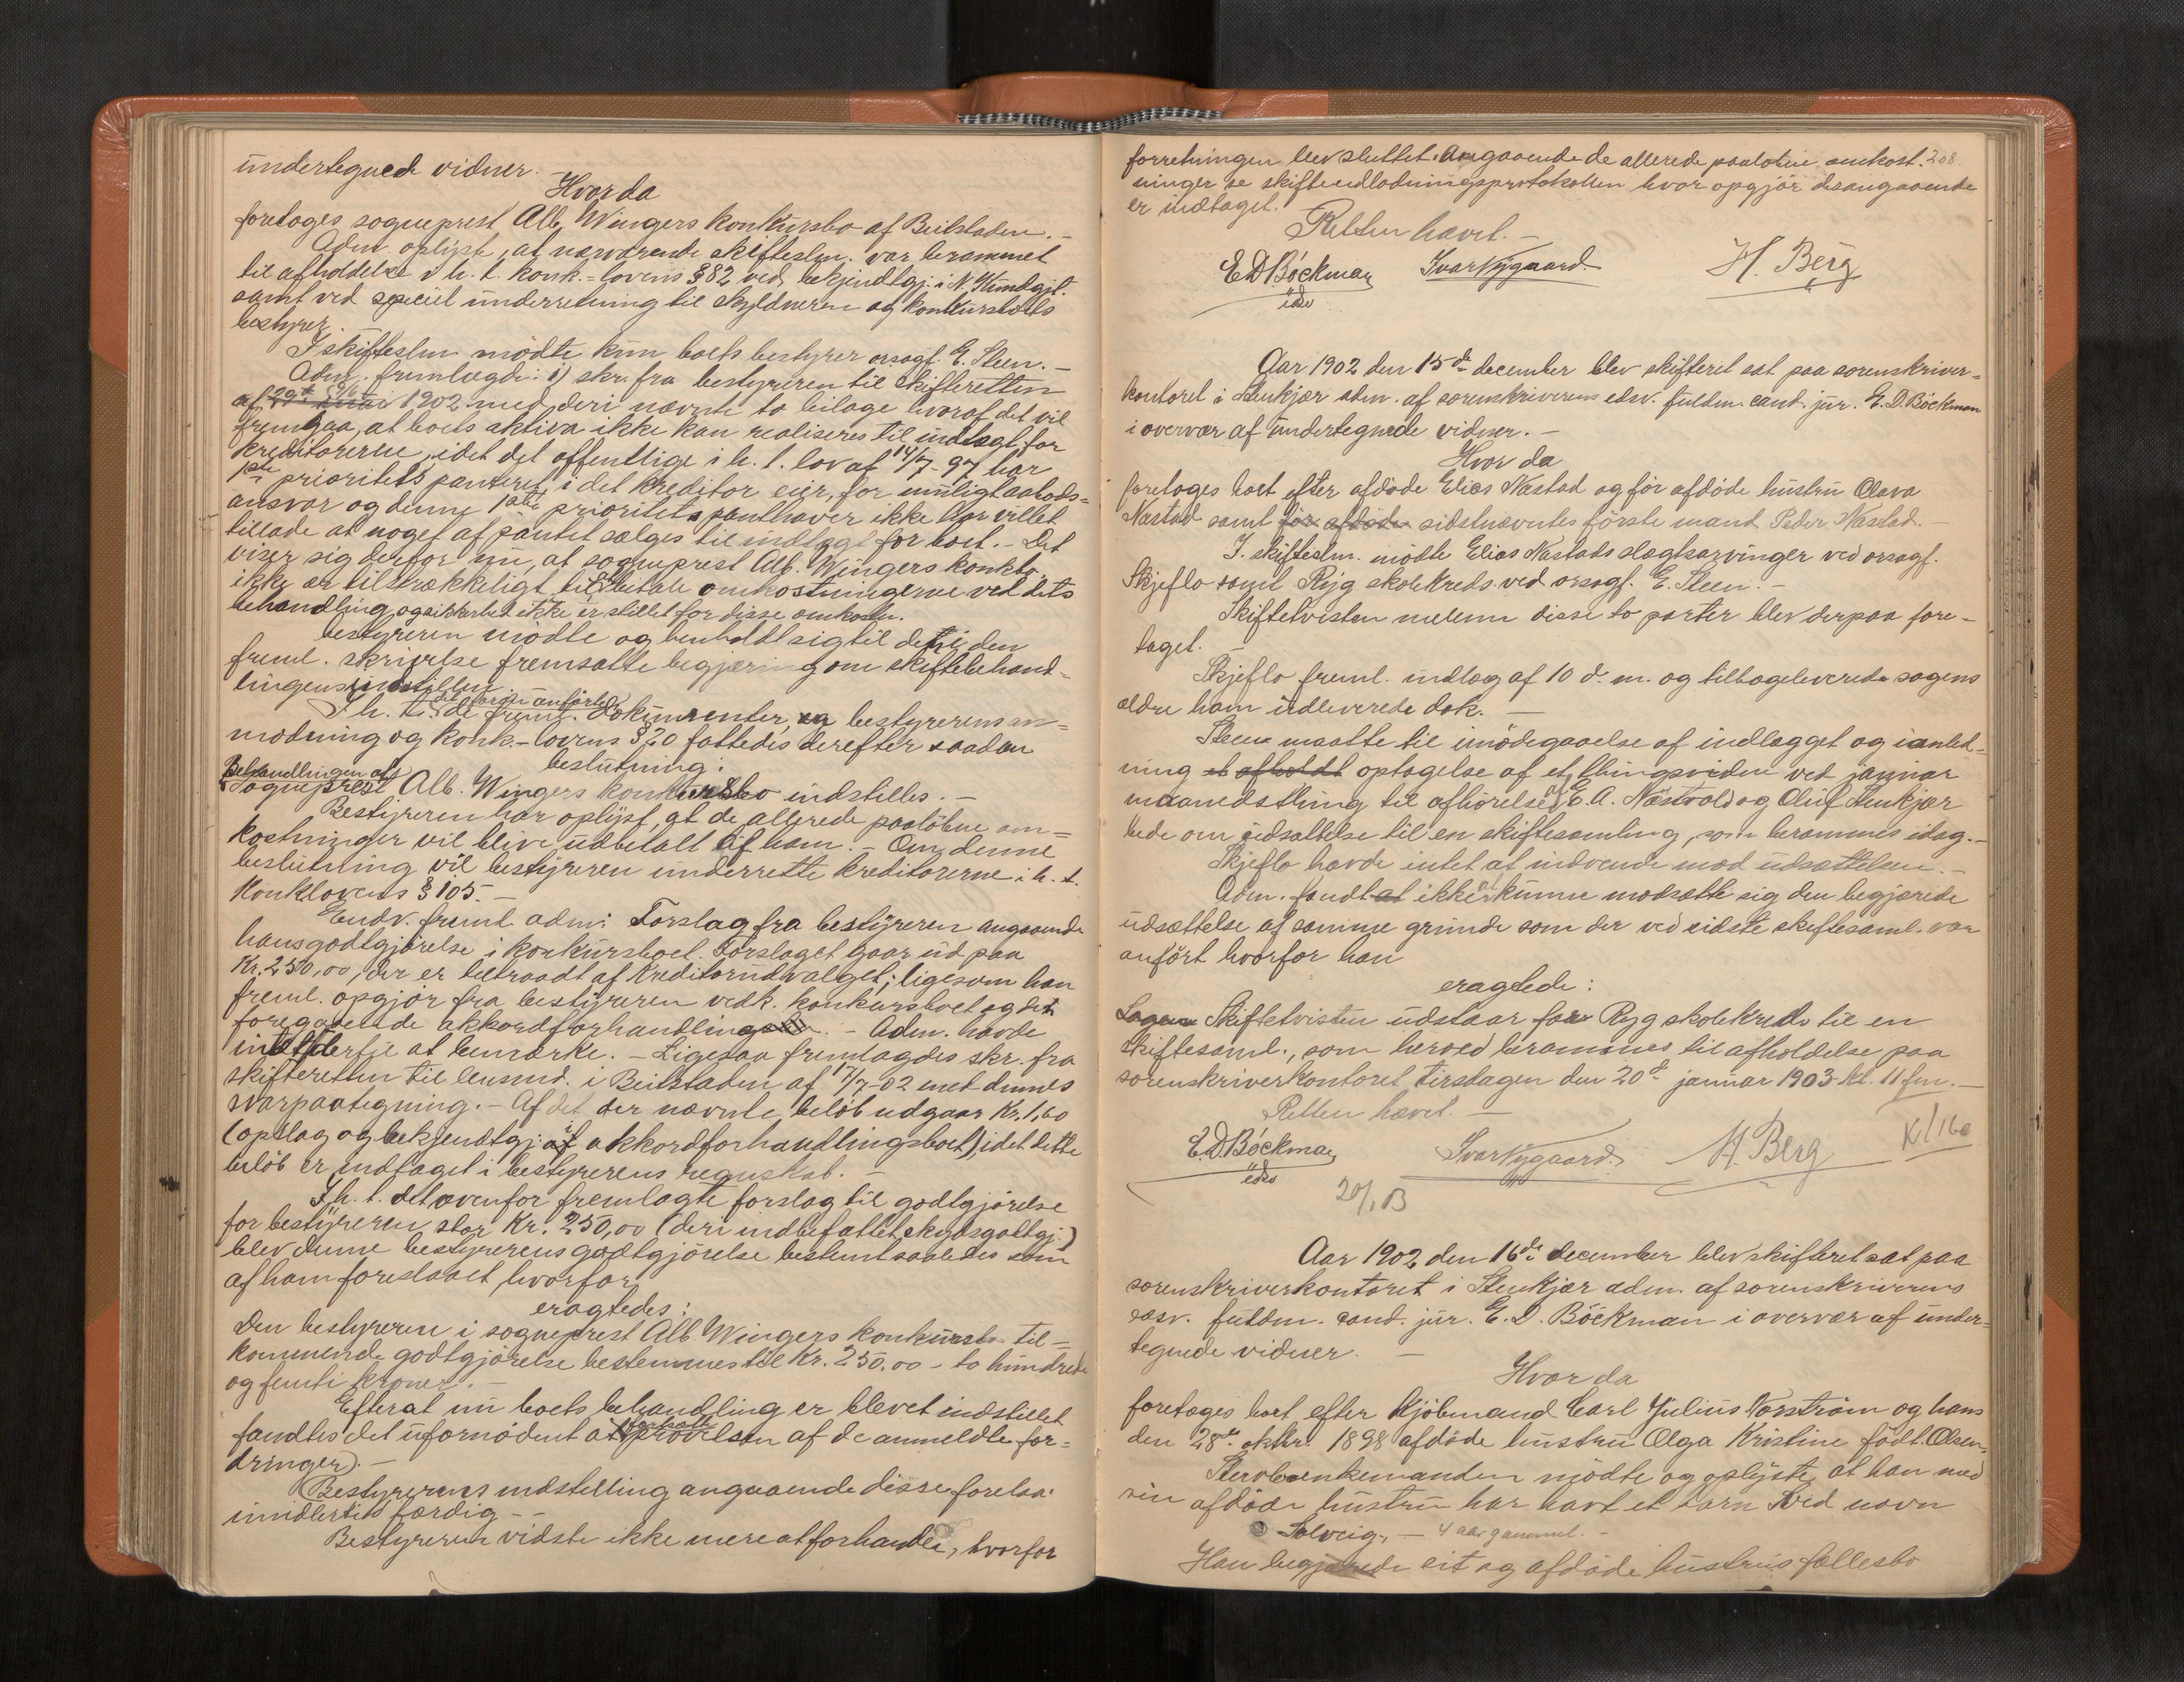 undertegnede vidner. –
Hvor da
foretoges sogneprest Alb. Wingers konkursbo af Beitstaden. –
Adm. oplyste, at nærværende skifteslm. var berammet
til afholdelse i h. t. konk.-lovens § 82 ved bekjendtgj. i N. Kundgjt.
samt ved speciel underretning til skyldneren og konkursboets
bestyrer.
I skifteslm. mödte kun boets bestyrer orsagf. E. Steen. –
Adm. fremlægde: 1) skr. fra bestyreren til skifteretten
af 1902 med deri nævnte to bilage hvoraf det vil
fremgaa, at boets aktiva ikke kan realiseres til indtægt for
kreditorerne, idet det offentlige i h. t. lov af 14/7-97 har
1ste prioritets panteret i det kreditor eier, for muligt aabods=
ansvar og denne 1ste prioritets panthaver ikke har villet
tillade at noget af pantet sælges til indtægt for boet. – Det
viser sig derfor nu, at sogneprest Alb. Wingers konkbo
ikke er tilstrækkeligt til at betale omkostningerne ved dets
behandling, og sikkerhed ikke er stillet for disse omkostn.
bestyreren mödte og henholdt sig til det i den
freml. skrivelse fremsatte begjæring om skiftebehand=
lingens indstillen.
det foran anförte
I h. t. de freml. dokumenter, og bestyrerens an=
modning og konk.-lovens § 20 fattedes derefter saadan
beslutning:
Behandlingen af
Sogneprest Alb. Wingers konkursbo indstilles. –
Bestyreren har oplyst, at de allerede paalöbne om=
kostninger vil blive udbetalt af ham. – Om denne
beslutning vil bestyreren underrette kreditorerne i h. t.
Konklovens § 105. –
Endv. freml. adm: Forslag fra bestyreren angaaende
hans godtgjörelse i konkursboet. Forslaget gaar ud paa
Kr. 250,00, der er tiltraadt af Kreditorudvalget; ligesom han
freml. opgjör fra bestyreren vedk. konkursboet og det
foregaaende akkordforhandling. – Adm. havde
intet dertil at bemærke. – Ligesaa fremlagdes skr. fra
skifteretten til lensmd. i Beitstaden af 17/7-02 med dennes
svarpaategning. – Af det der nævnte belöb udgaar Kr. 1,60
(opslag og bekjendtgj. af akkordforhandlingsboet) idet dette
belöb er indtaget i bestyrerens regnskab. –
I h. t. det ovenfor fremlagte forslag til godtgjörelse
for bestyreren, stor Kr. 250,00 (deri indbefattet skydsgodtgj.)
blev denne bestyrerens godtgjörelse bestemt saaledes som
af ham foreslaaet, hvorfor
eragtedes:
Den bestyreren i sogneprest Alb. Wingers konkursbo til=
kommende godtgjörelse bestemmes til Kr. 250.00 – to hundrede
og femti kroner. –
Efterat nu boets behandling er blevet indstillet
fandtes det ufornödent at prövelsen af de anmeldte for=
dringer). –
Bestyrerens indstilling angaaende disse forelaa
imidlertid færdig. –
Bestyreren vidste ikke mere at forhandle, hvorfor
208.
forretningen blev sluttet. Angaaende de allerede paalöbne omkost.
ninger se skifteudlodningsprotokollen hvor opgjör desangaaende
er indtaget.
Retten hævet. –
E D Böckman Ivar Nygaard. H. Berg
edsv
Aar 1902 den 15de december blev skifteret sat paa sorenskriver=
kontoret i Stenkjær adm. af sorenskriverens edsv. fuldm. cand. jur. E. D. Böckman
i overvær af undertegnede vidner. –
Hvor da
foretoges boet efter afdöde Elias Næstad og för afdöde hustru Olava
Næstad samt för afdöde sidstnævntes förste mand Peder Næstad. –
I skifteslm. mödte Elias Næstads slegtsarvinger ved orsagf.
Skjeflo samt Ryg skolekreds ved orsagf. E. Steen. –
Skiftetvisten mellem disse to parter blev derpaa fore=
taget.
Skjeflo freml. indlæg af 10 d. m. og tilbageleverede sagens
ældre ham udleverede dok. –
Steen maatte til imödegaaelse af indlægget og i anled=
ning et afholdt optagelse af et thingsvidne ved januar
maanedsthing til afhörelse af E. A. Næstvold og Oluf Stenkjær
bede om udsættelse til en skiftesamling, som berammes idag. –
Skjeflo havde intet at indvende mod udsættelsen. –
Adm. fandt at ikke at kunne modsætte sig den begjærede
udsættelse af samme grunde som der ved sidste skiftesaml. var
anfört hvorfor han
eragtede:
Sagen Skiftetvisten udstaar for Ryg skolekreds til en
skiftesaml., som herved berammes til afholdelse paa
sorenskriverkontoret tirsdagen den 20de januar 1903 kl. 11 fm. –
Retten hævet. –
E. D. Böckman Ivar Nygaard. H. Berg
edsv
Aar 1902 den 16de december blev skifteret sat paa
sorenskriverkontoret i Stenkjær adm. af sorenskriverens
edsv. fuldm. cand. jur. E. D. Böckman i overvær af under=
tegnede vidner. –
Hvor da
foretoges boet efter kjöbmand Carl Julius Norström og hans
den 28de oktbr. 1898 afdöde hustru Olga Kristine födt Olsen.
Stervboenkemanden mödte og oplyste at han med
sin afdöde hustru har havt et barn ved navn
Solveig, – 4 aar gammel. –
Han begjærede sit og afdöde hustrus fællesbo